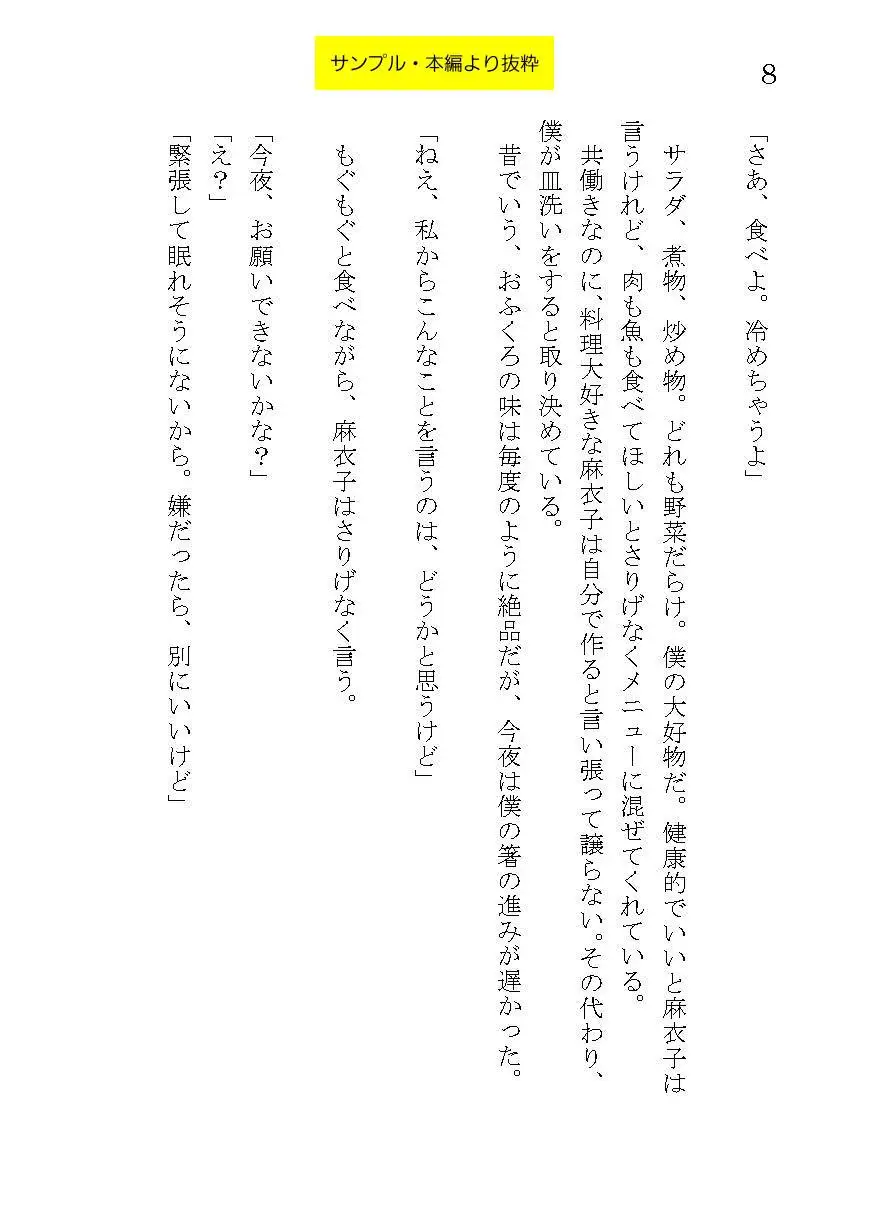 サンプル・本編より抜粋
8
「さあ、食べよ。冷めちゃうよ」
サラダ、煮物、炒め物。どれも野菜だらけ。僕の大好物だ。健康的でいいと麻衣子は
言うけれど、肉も魚も食べてほしいとさりげなくメニューに混ぜてくれている。
共働きなのに、料理大好きな麻衣子は自分で作ると言い張って譲らない。その代わり、
僕が皿洗いをすると取り決めている。
昔でいう、おふくろの味は毎度のように絶品だが、今夜は僕の箸の進みが遅かった。
「ねえ、私からこんなことを言うのは、どうかと思うけど」
もぐもぐと食べながら、麻衣子はさりげなく言う。
「今夜、お願いできないかな？」
「え？」
「緊張して眠れそうにないから。嫌だったら、別にいいけど」